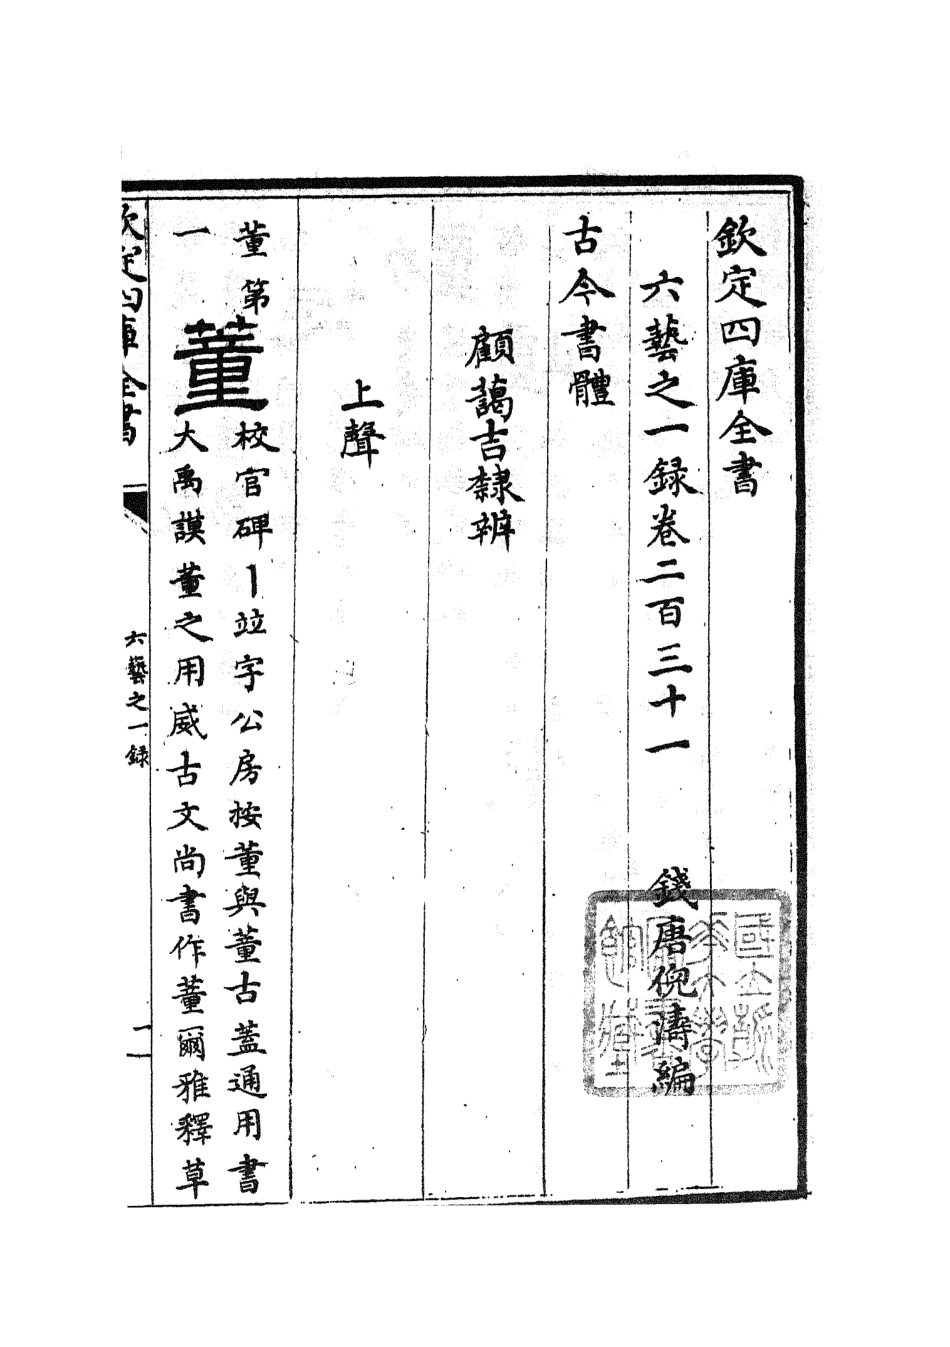 欽定四庫全書
六藝之一録卷二百三十一 錢唐倪濤編
古今書體
顧藹吉隸辨
上聲
董第一
蕫
校官碑丨竝字公房按董與蕫古蓋通用書
大禹謨董之用威古文尚書作蕫爾雅釋草
欽定四庫全書
六藝之一録
一
國立浙江大學圖書館藏